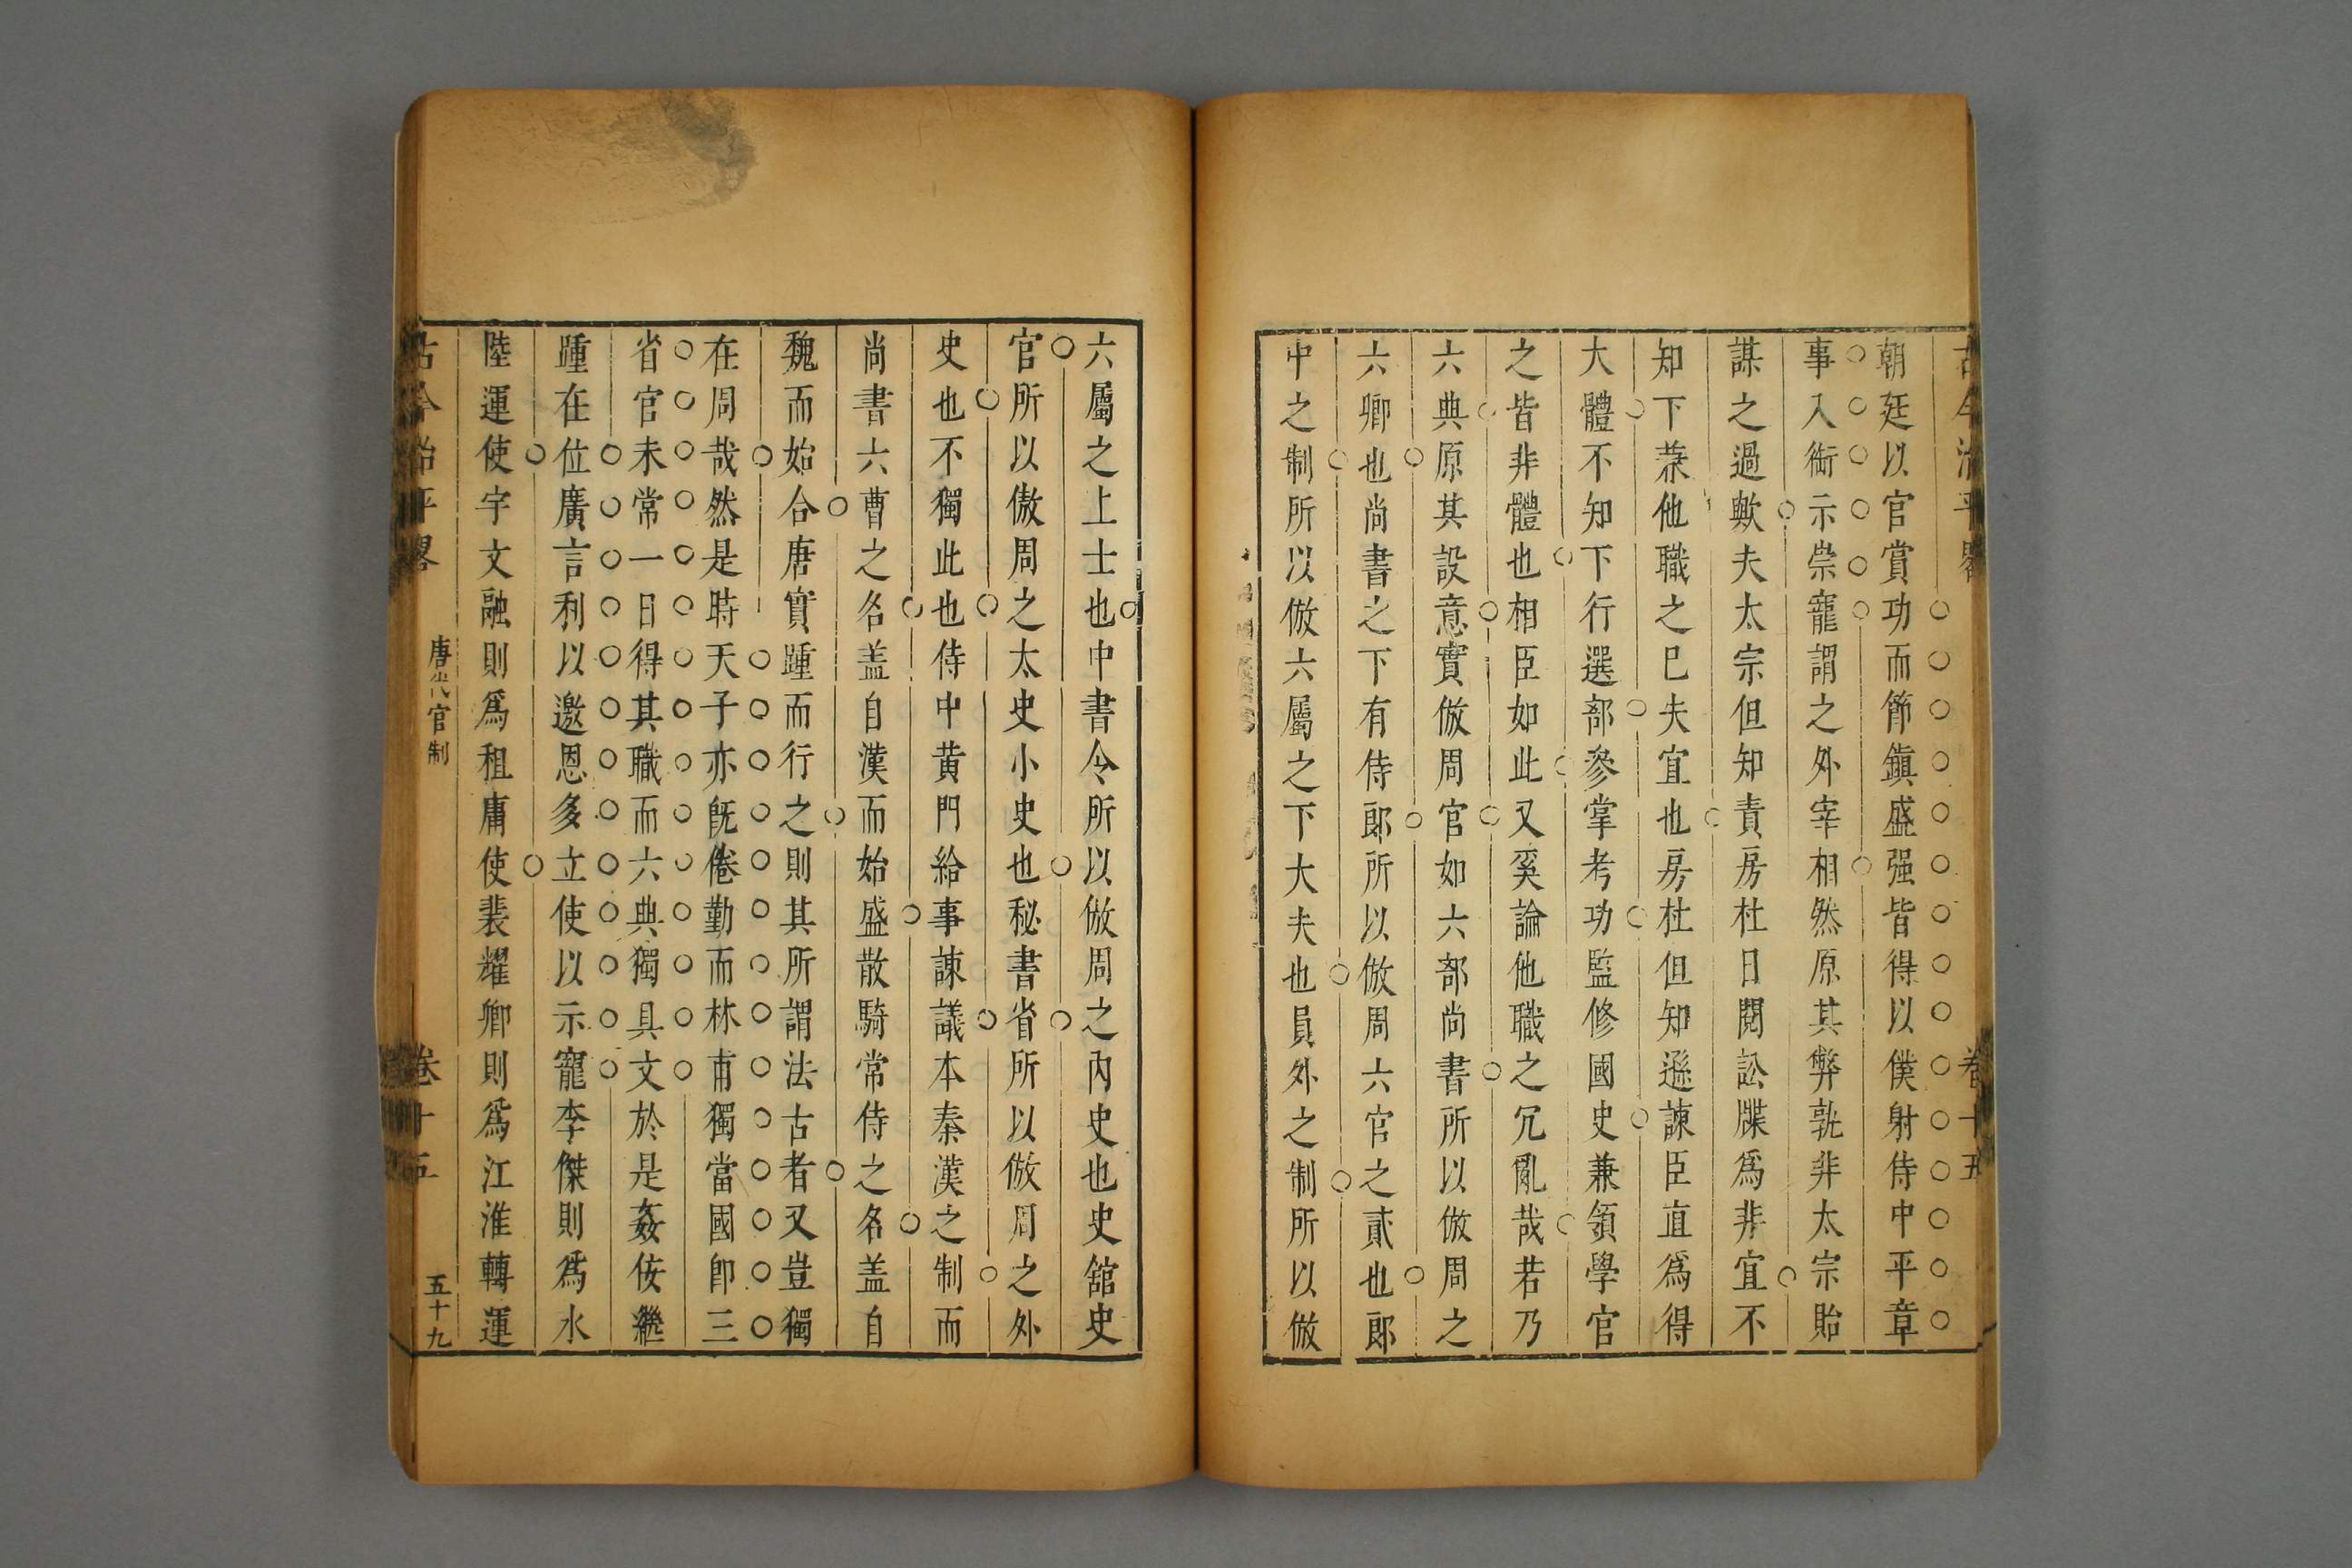 古今治平畧 卷十五
朝廷以官賞功而節鎮盛强皆得以僕射侍中平章
事入銜示崇寵謂之外宰相然原其弊孰非太宗貽
謀之過歟夫太宗但知責房杜日閱訟牒爲非宜不
知下蒹他職之巳夫宜也房杜但知遜諫臣直爲得
大體不知下行選部參掌考功監修國史兼領學官
之皆非體也相臣如此又奚論他職之冗亂哉若乃
六典原其設意實倣周官如六部尚書所以倣周之
六卿也尚書之下有侍郎所以倣周六官之貳也郎
中之制所以倣六屬之下大夫也員外之制所以倣
六屬之上士也中書令所以倣周之內史也史舘史
官所以倣周之太史小史也秘書省所以倣周之外
史也不獨此也侍中黄門給事諫議本秦漢之制而
尚書六曹之名盖自漢而始盛散騎常侍之名盖自
魏而始合唐實踵而行之則其所謂法古者又豈獨
在周哉然是時天子亦旣倦勤而林甫獨當國卽三
省官未常一日得其職而六典獨具文於是姦佞繼
踵在位廣言利以邀恩多立使以示寵李傑則爲水
陸運使宇文融則爲租庸使裴耀卿則爲江淮轉運
古今治平畧 唐代官制 卷十五 五十九